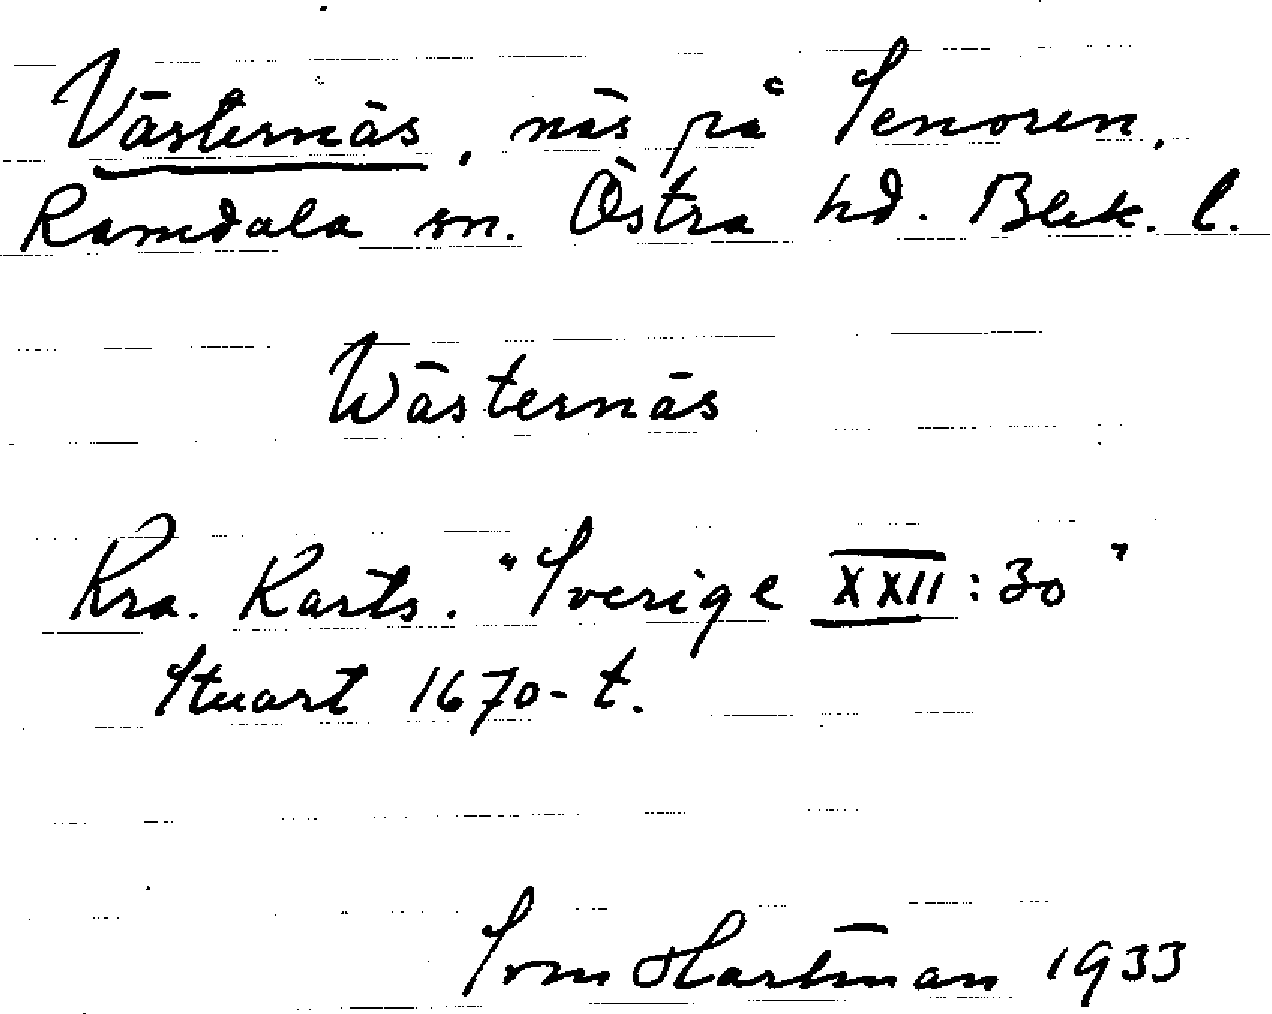 Västernäs, näs på Senoren,
Ramdala sn. Östra hd. Blek. l.
Wästernäs
Kra. Karts. "Sverige XXII:30"
Stuart 1670-t.
Sven Hartman 1933